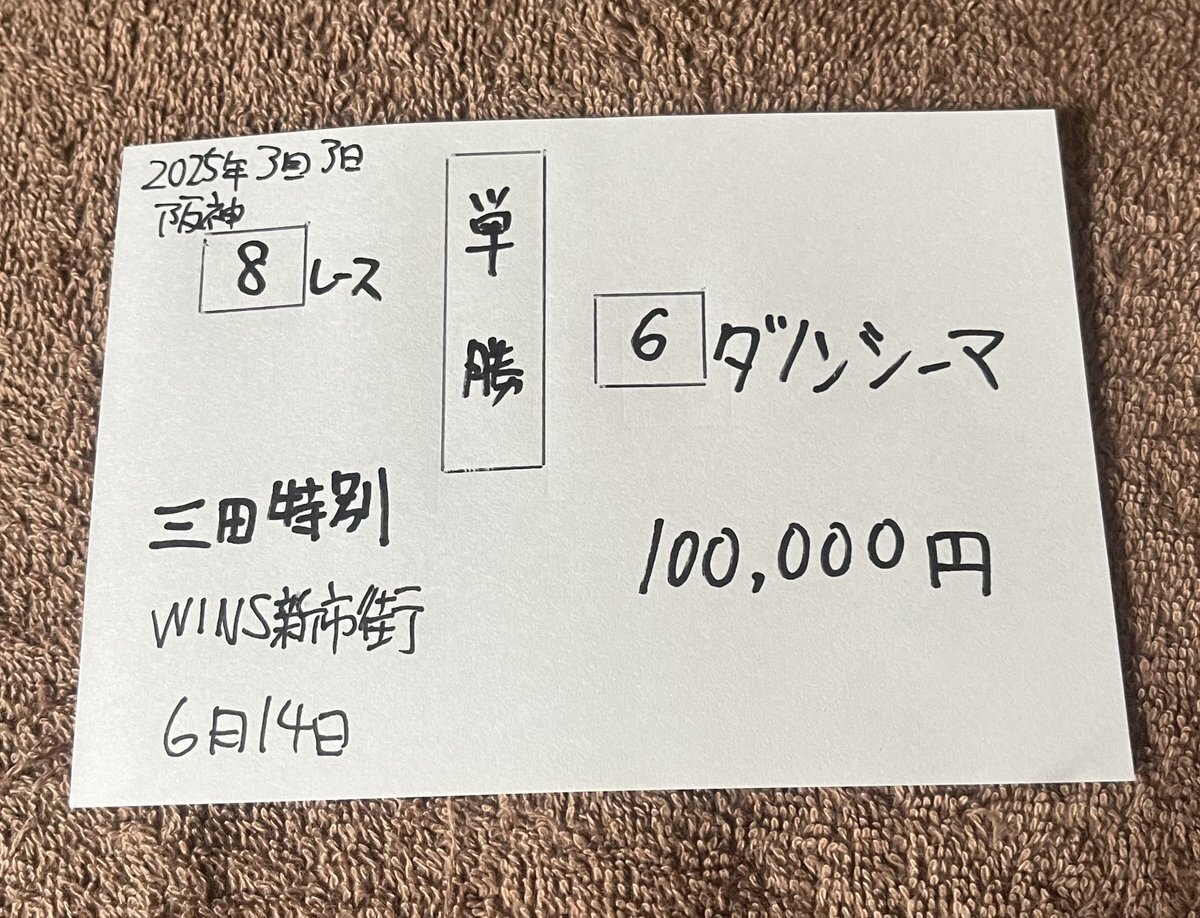 2025年3回3日
阪神
8レース
単勝
6 ダノンシーマ
三田特別
100,000円
WINS新市街
6月14日